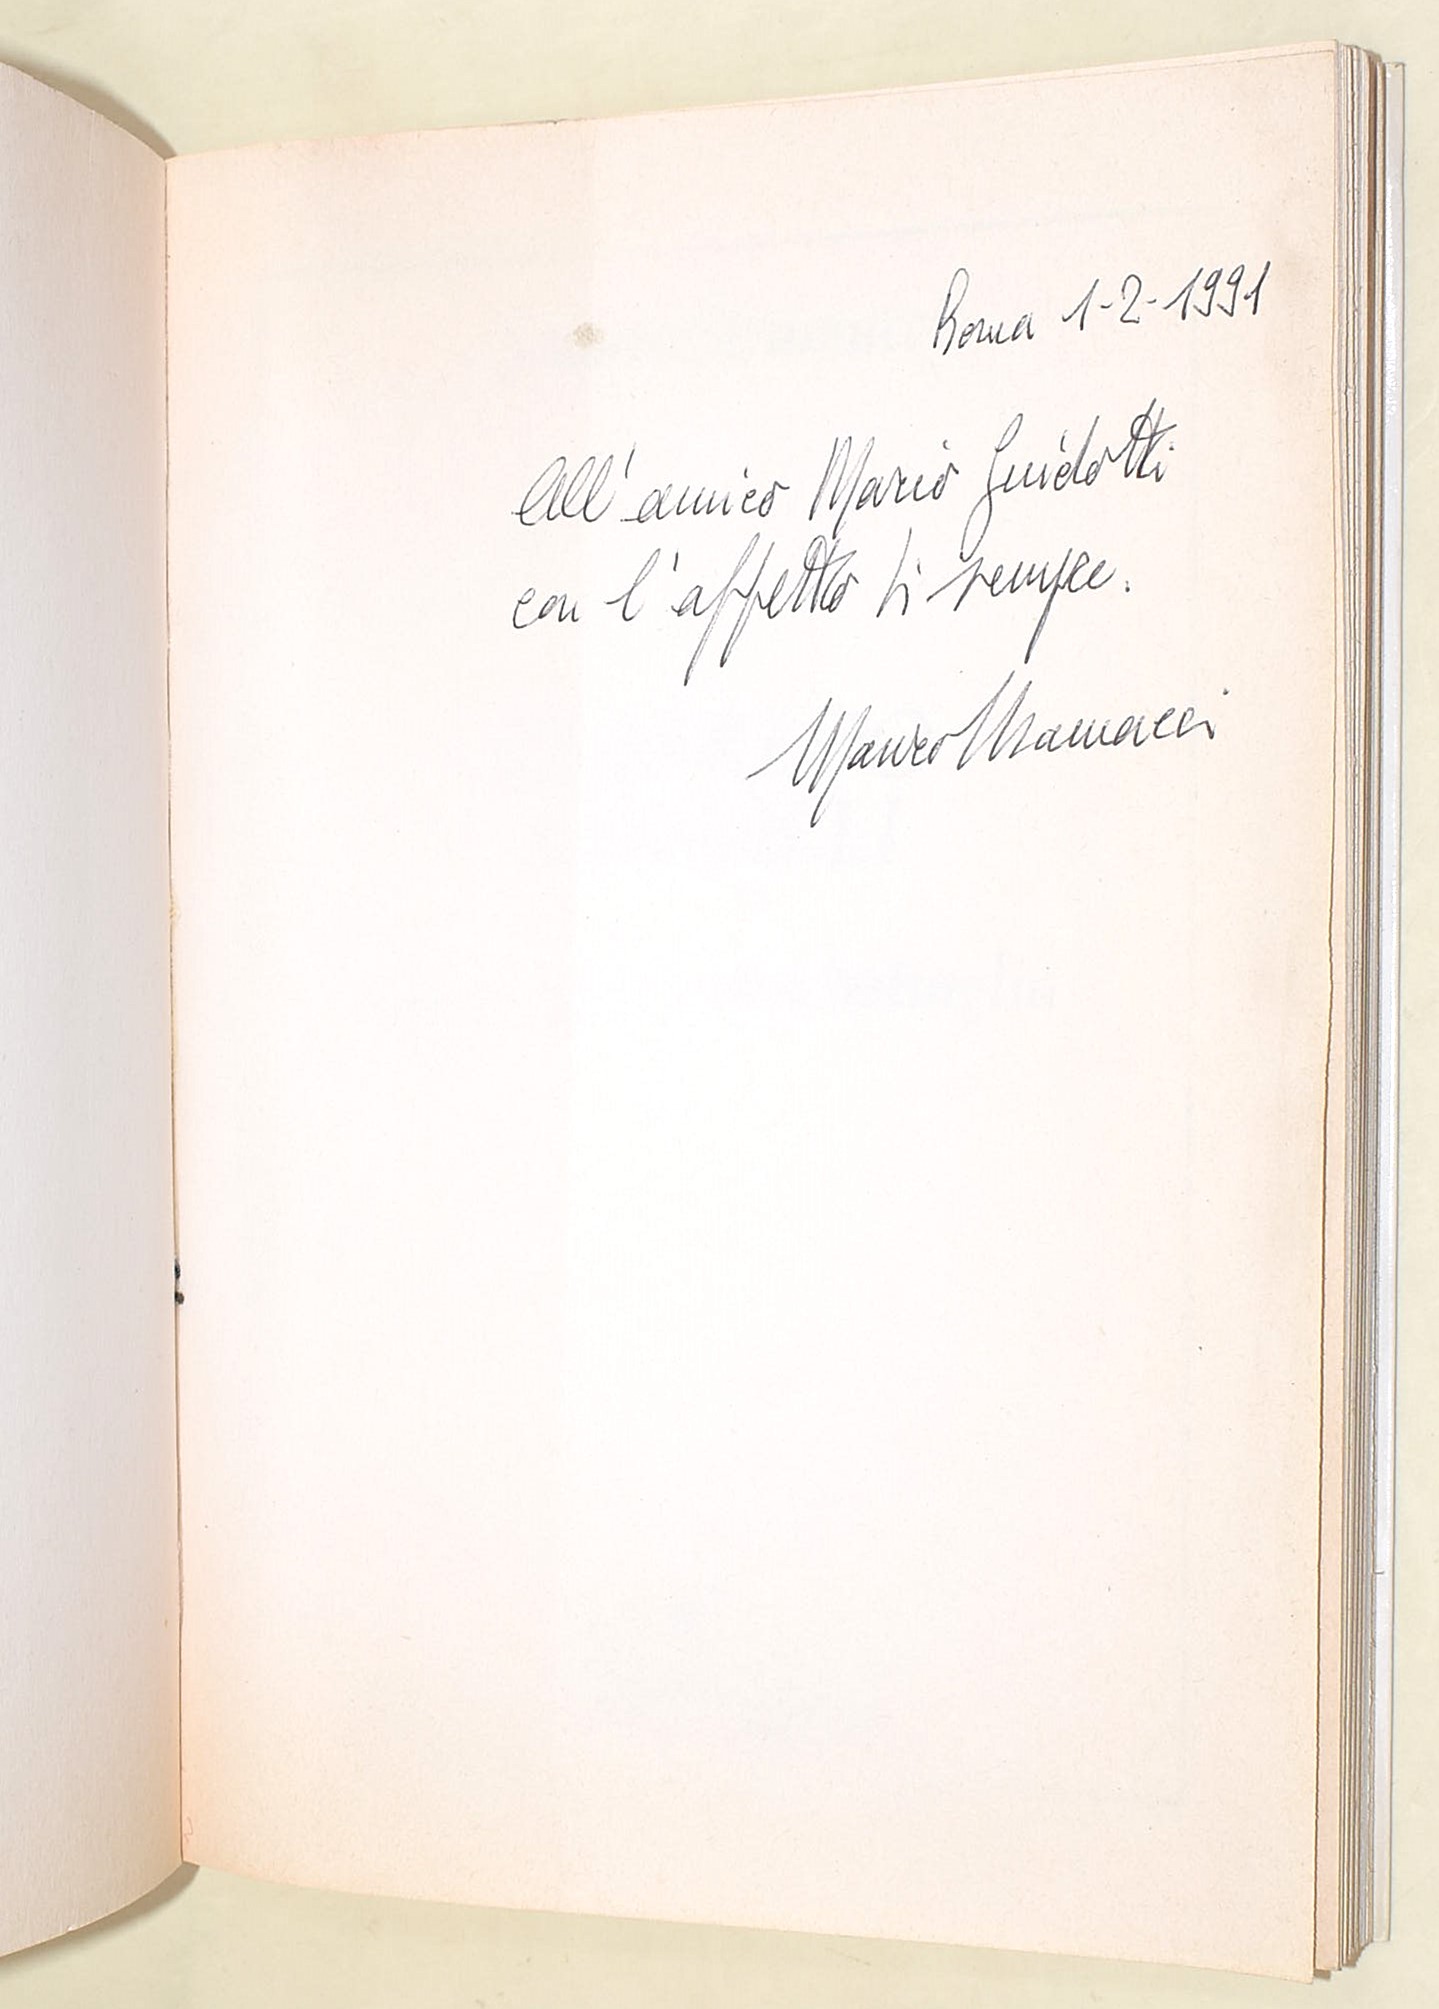 Roma 1-2-1991
All'amico Mario Guidotti
con l'affetto di sempre.